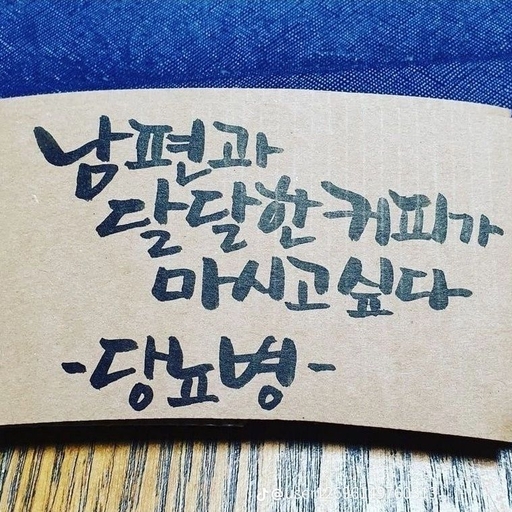 남편과
달달한 커피가
마시고 싶다
-당뇨병-